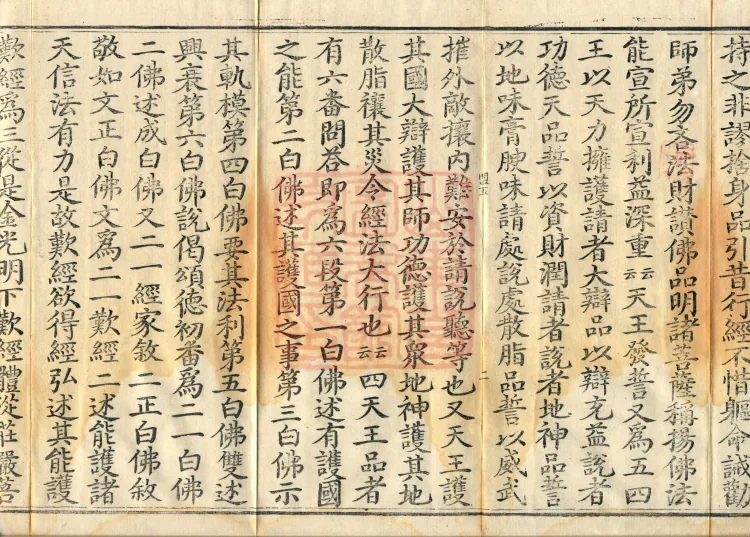 持之非謬捨身品引昔行經不惜軀命誡勸
師弟勿吝法財讚佛品明諸菩薩稱揚佛法
能宣所宣利益深重云云天王發誓又爲五四
王以天力擁護請者大辯品以辯充益說者
功德天品誓以資財潤請者說者地神品誓
以地味膏腴味請處說處散脂品誓以威武
摧外敵攘內難安於請說聽等也又天王護
其國大辯護其師功德護其衆地神護其地
散脂禳其災令經法大行也云云四天王品者
有六番問荅即爲六段第一白佛述有護國
之能第二白佛述其護國之事第三白佛示
其軌模第四白佛要其法利第五白佛雙述
興衰第六白佛說偈頌德初番爲二一白佛
二佛述成白佛又二一經家敘二正白佛敘
敬如文正白佛文爲二一歎經二述能護諸
天信法有力是故歎經欲得經弘述其能護
歎經爲三從是金光明下歎經體從莊嚴菩